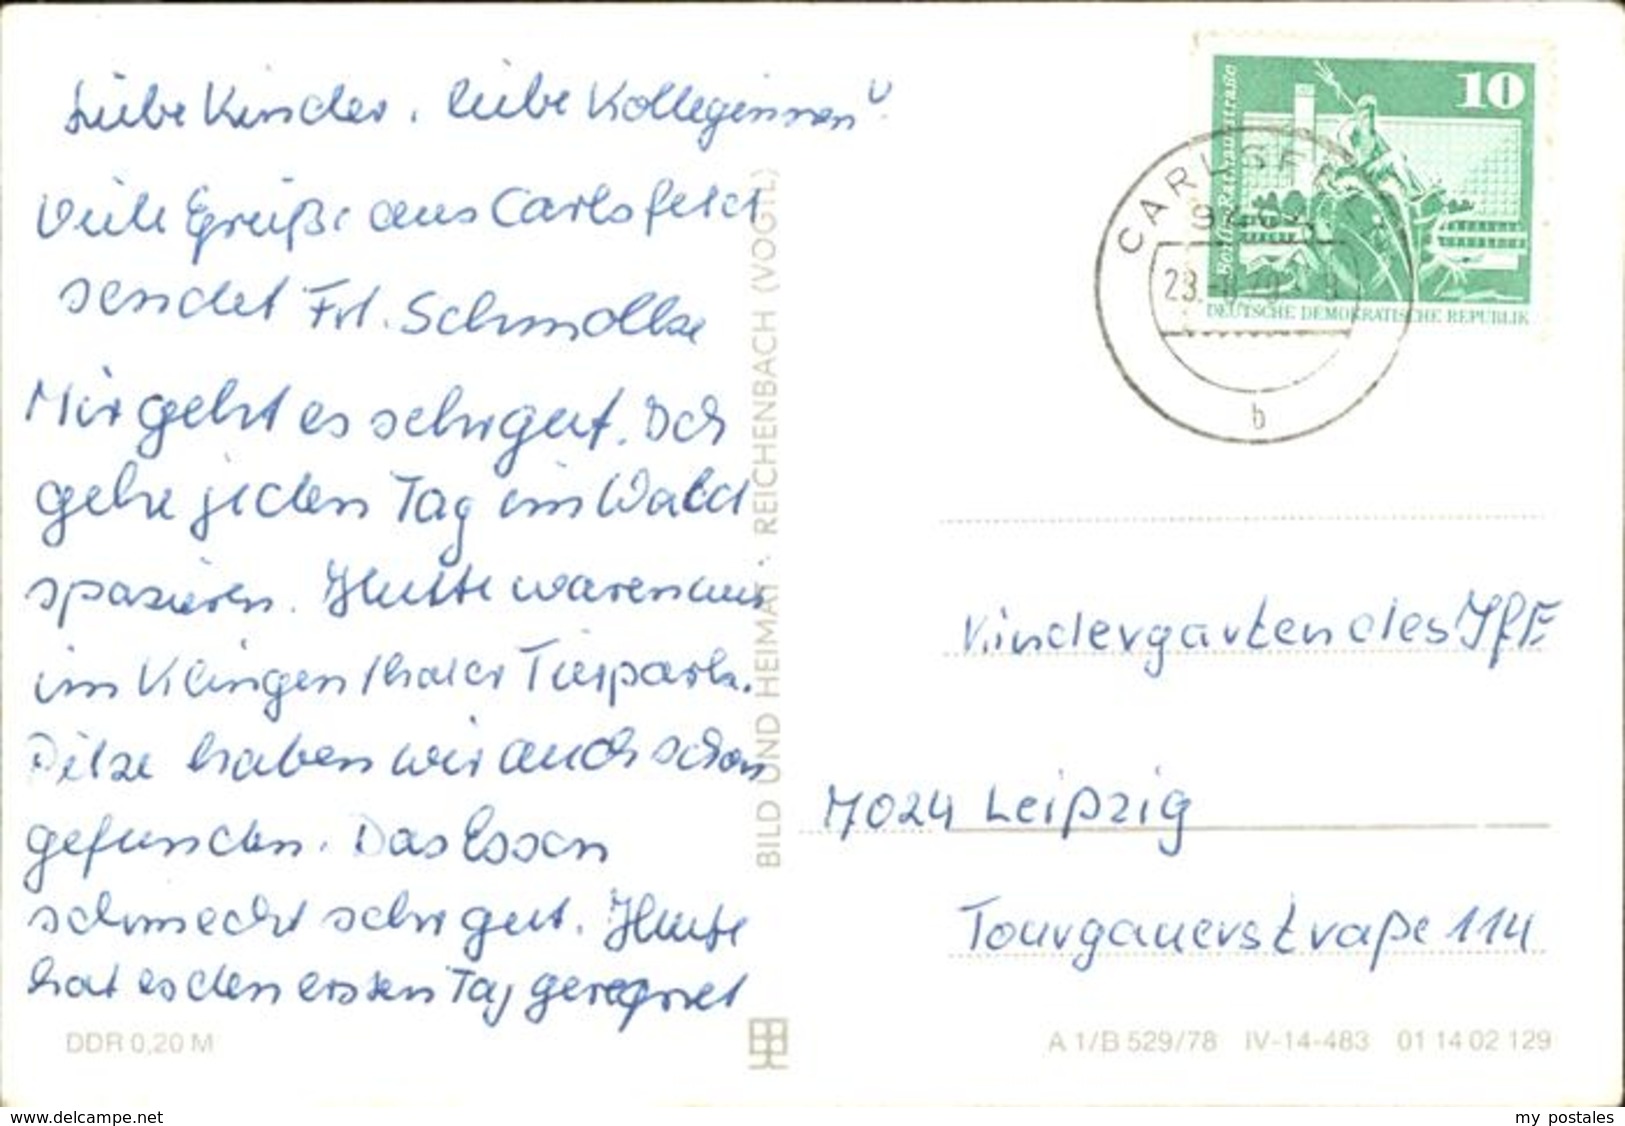 Liebe Kinder, liebe Kolleginnen!
Viele Grüße aus Carlsfeld
sendet Frl. Schmolke
Mir geht es sehr gut. Ich
gehe jeden Tag im Wald
spazieren. Heute waren wir
im Klingenthaler Tierpark.
Pilze haben wir auch schon
gefunden. Das Essen
schmeckt sehr gut. Heute
hat es den ersten Tag geregnet
DDR 0,20 M
BILD UND HEIMAT · REICHENBACH (VOGTL)
10
Berlin, Rathausstraße
DEUTSCHE DEMOKRATISCHE REPUBLIK
b
Kindergarten des IfE
7024 Leipzig
Tourgauerstraße 114
A 1/B 529/78 IV-14-483 01 14 02 129
www.delcampe.net
my_postales